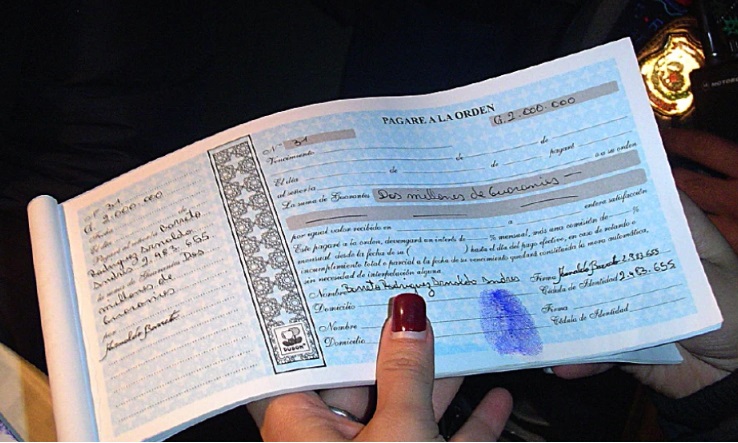 Nº 31
G. 2.000.000
Fecha
El día
Barreto
Rodriguez Arnaldo
Andrés 2.483.655
la suma de Guaraníes Dos
millones de
Guaraníes
Arnaldo Barreto
PAGARE A LA ORDEN
Nº 31
G. 2.000.000
Vencimiento de de
El día de de pagaré
al señor/a o a su orden
La suma de Guaraníes Dos millones de Guaraníes
por igual valor recibido en a entera satisfacción
Este pagaré a la orden, devengará un interés de % mensual, más una comisión de %
mensual, desde la fecha de su ( ) hasta el día del pago efectivo, en caso de retardo o
incumplimiento total o parcial a la fecha de su vencimiento quedará constituida la mora automática,
sin necesidad de interpelación alguna.
Nombre Barreto Rodriguez Arnaldo Andres Firma Arnaldo Barreto 2.483.655
Domicilio Cédula de Identidad 2.483.655
Nombre Firma
Domicilio Cédula de Identidad
MOTOR